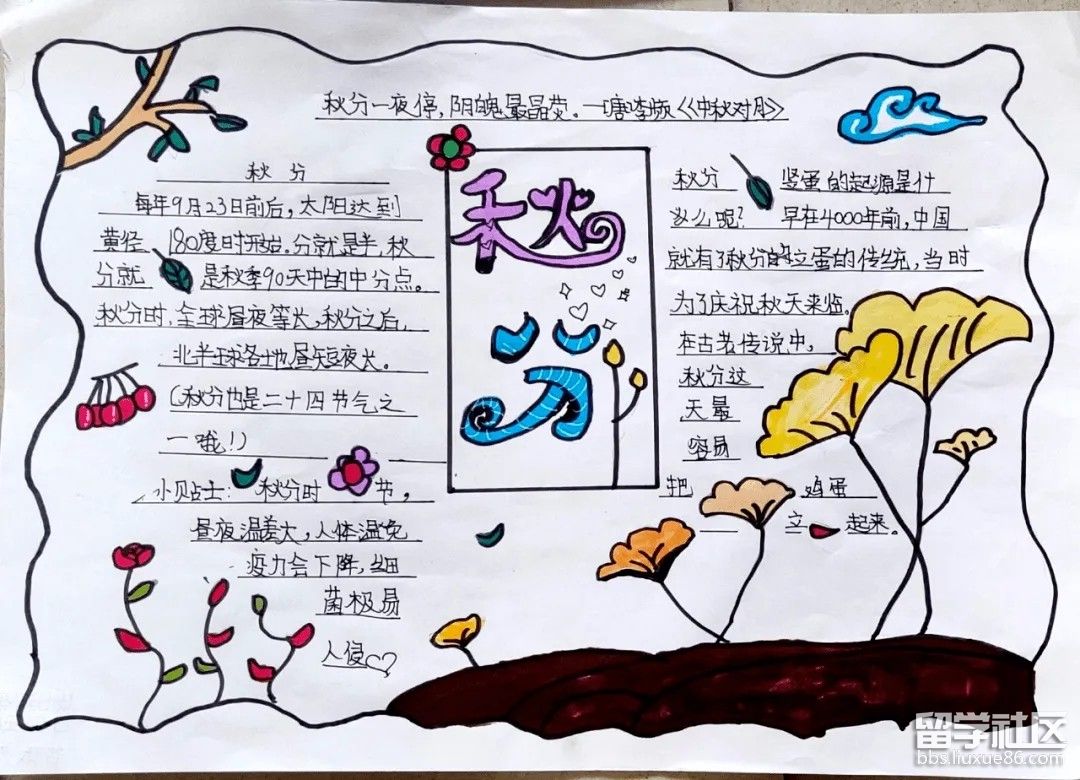 秋分一夜停,阴魄最晶荧。一唐李频《中秋对月》
秋分
秋分
每年9月23日前后,太阳达到
黄经180度时开始.分就是半,秋
分就是秋季90天中的中分点。
秋分时,全球昼夜等长,秋分之后,
北半球各地昼短夜长。
(秋分也是二十四节气之
一哦!)
小贝占士:秋分时节,
昼夜温差大,人体温免
疫力会下降,细
菌极易
人侵
秋分竖蛋的起源是什
么呢?早在4000年前,中国
就有了秋分的立蛋的传统,当时
为了庆祝秋天来临。
在古老传说中,
秋分这
天最
容易
把鸡蛋
立起来。
留学社区
bbs.liuxue86.com